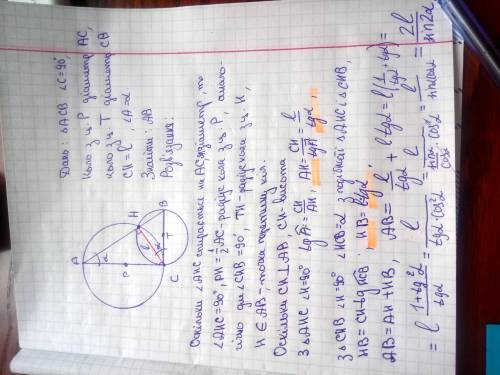 Дано: △ACB ∠C=90°
Коло з ц. P діаметр AC,
коло з ц T діаметр CB
CH=l, ∠A=α
Знайти: AB
Розв'язання:
A
α
H
P
l
α
B
T
C
Оскільки ∠AHC спирається на AC діаметр, то
∠AHC=90°, PH=1/2 AC - радіус кола з ц. P, анало-
гічно для ∠CHB=90°, TH - радіус кола з ц. H,
H ∈ AB - точка перетину кіл.
Оскільки CH⊥AB, CH - висота
З △AHC ∠H=90° tgA=CH/AH, AH=CH/tgA=l/tgα,
З △CHB ∠H=90° ∠HCB=α з подібності △AHC і △CHB,
HB=CH·tgHCB. HB=l tgα,
AB=AH+HB, AB=l/tgα+l tgα=l(1/tgα+tgα)=
=l (1+tg²α)/tgα = l/(tgα·cos²α) = l/(sinα/cosα · cos²α) = l/(sinαcosα) = 2l/sin2α